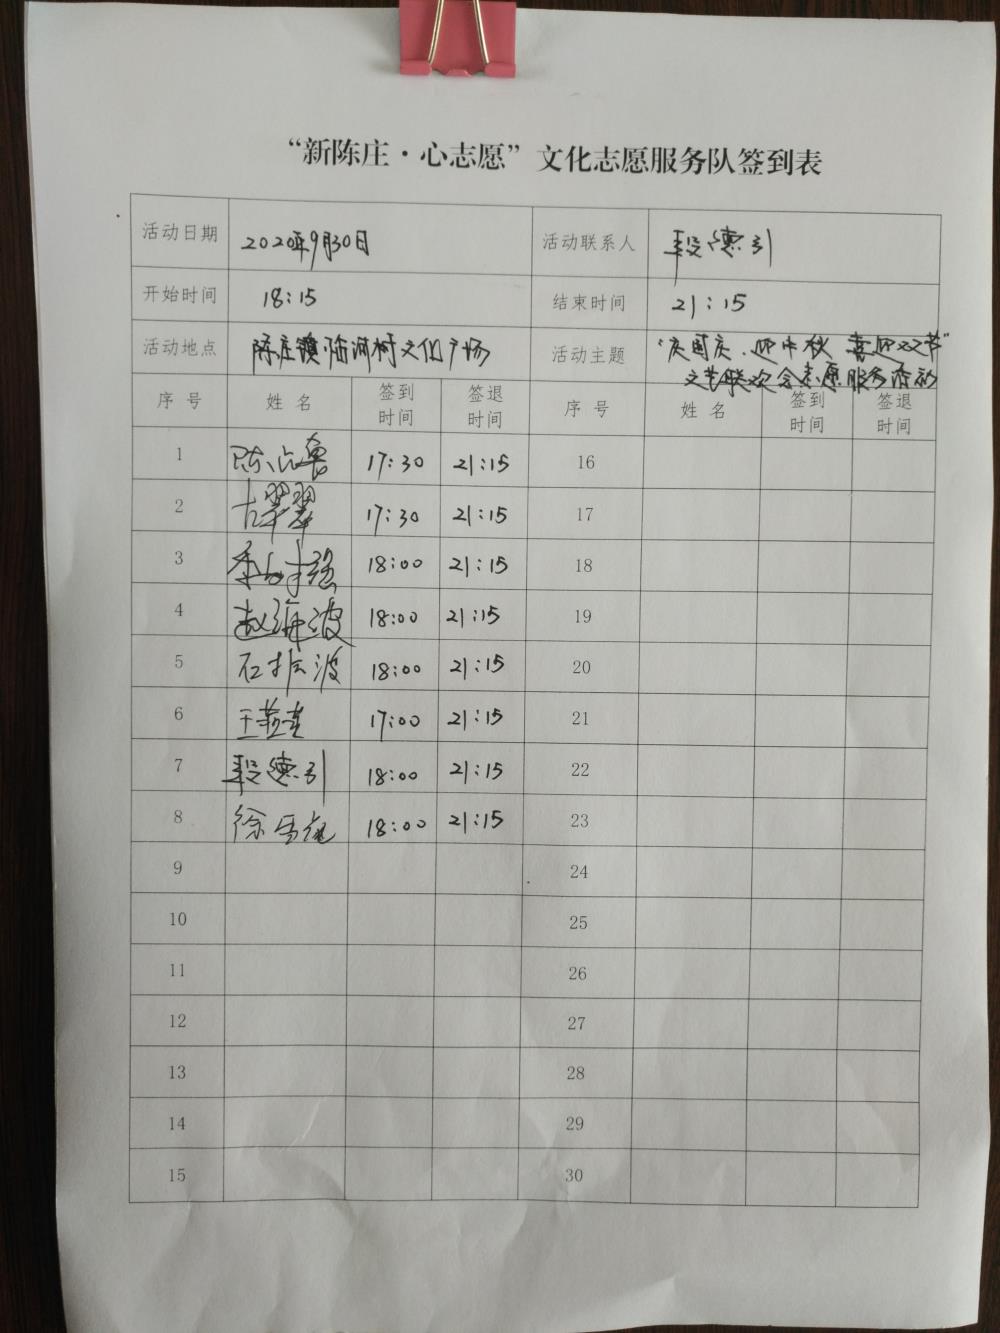 “新陈庄·心志愿”文化志愿服务队签到表
活动日期 2020年9月30日 活动联系人 段德引
开始时间 18:15 结束时间 21:15
活动地点 陈庄镇陆河村文化广场 活动主题 “庆国庆、迎中秋 喜迎双节”
文艺联欢会志愿服务活动
序号 姓名 签到时间 签退时间 序号 姓名 签到时间 签退时间
1 17:30 21:15 16
2 古翠翠 17:30 21:15 17
3 18:00 21:15 18
4 赵海波 18:00 21:15 19
5 石振波 18:00 21:15 20
6 17:00 21:15 21
7 段德引 18:00 21:15 22
8 徐 18:00 21:15 23
9 24
10 25
11 26
12 27
13 28
14 29
15 30